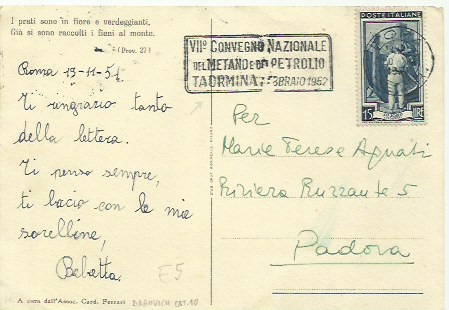 I prati sono in fiore e verdeggianti.
Già si sono raccolti i fieni al monte.
(Prov. 27)
VIIº CONVEGNO NAZIONALE
DEL METANO E DEL PETROLIO
TAORMINA, FEBBRAIO 1952
POSTE ITALIANE
15 LIRE
Roma 13-11-51
Ti ringrazio tanto
della lettera.
Ti penso sempre,
ti bacio con le mie
sorelline,
Bebetta.
Per
Marie Terese Agnati
Riviera Ruzzante 5
Padova
E5
A cura dell'Assoc. Card. Ferrari
DABOVICH CAT. 10